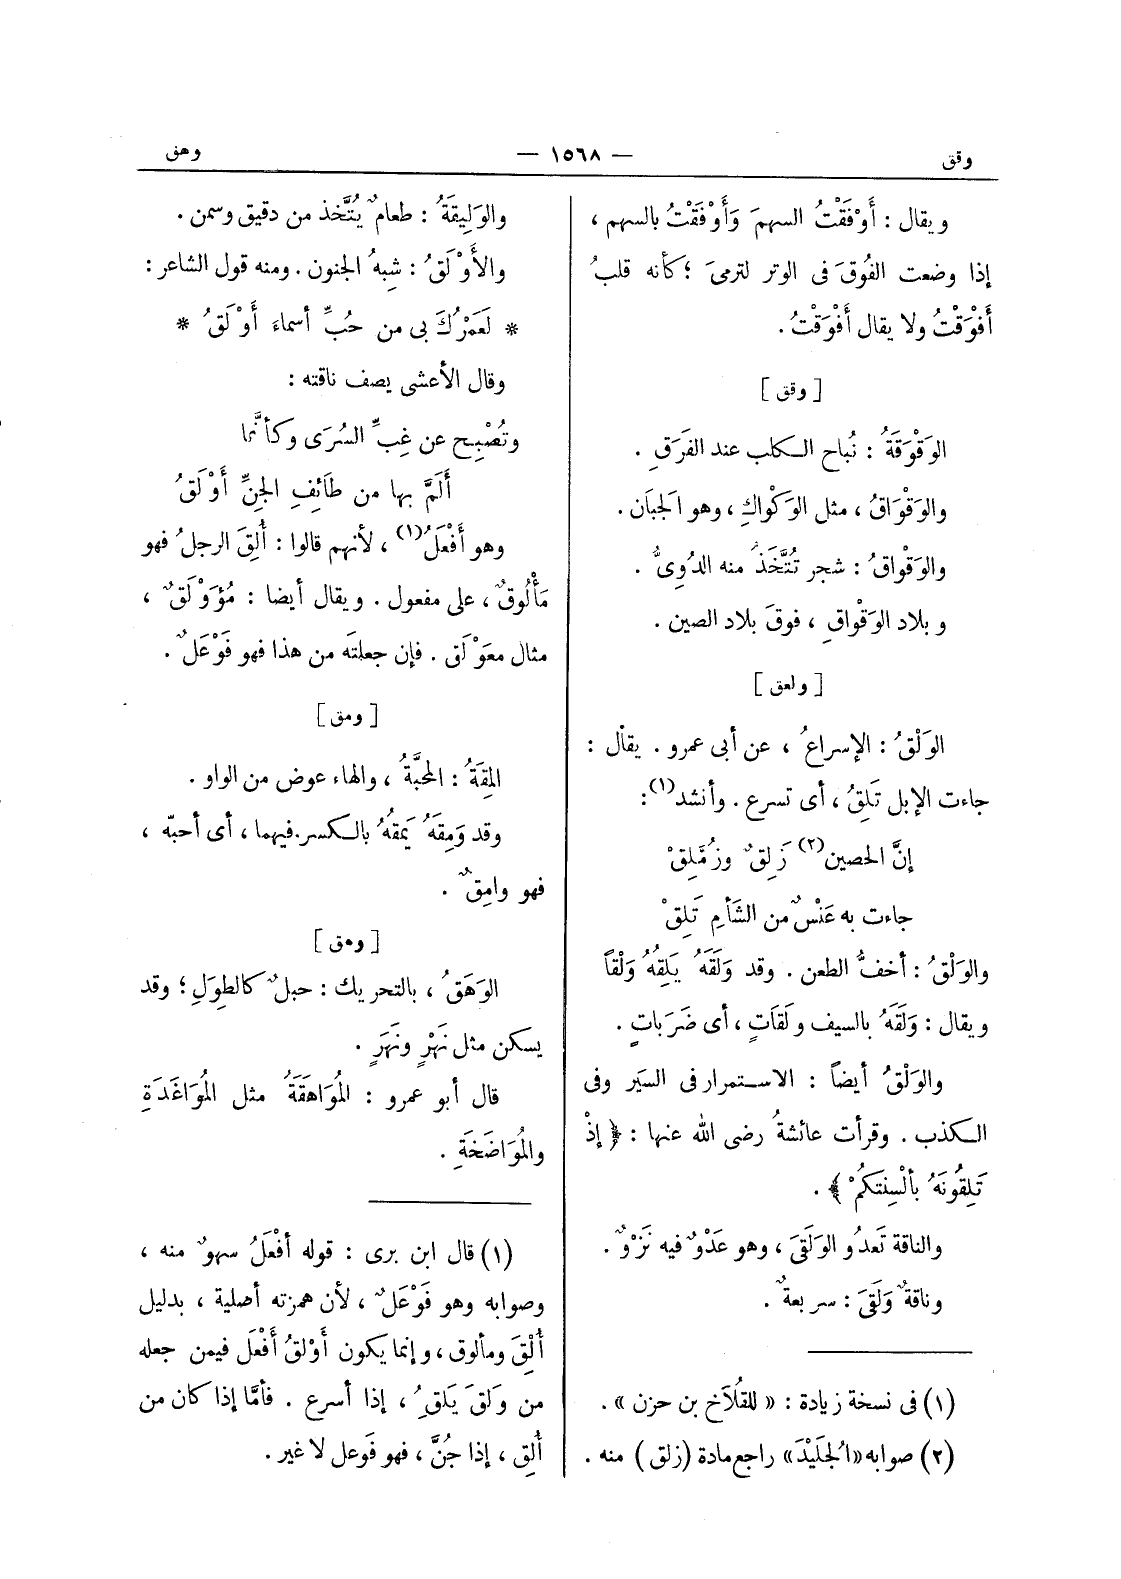 وقق
— ١٥٦٨ —
وهق
ويقال : أَوْفَقْتُ السهمَ وَأَوْفَقْتُ بالسهم ،
إذا وضعت الفُوقَ فى الوتر لترمىَ ؛ كأنه قلبُ
أَفْوَقْتُ ولا يقال أَفْوَقْتُ .
[ وقق ]
الوَقْوَقَةُ : نُباح الكلب عند الفَرَقِ .
والوَقْوَاقُ ، مثل الوَكْوَاكِ ، وهو الجَبَان .
والوَقْواقُ : شجر تُتَّخَذُ منه الدُوِىُّ .
وبلاد الوَقْواقِ ، فوقَ بلاد الصين .
[ ولعق ]
الوَلْقُ : الإسراعُ ، عن أبى عمرو . يقال :
جاءت الإبل تَلِقُ ، أى تسرع . وأنشد(١) :
إنَّ الحصين(٢) زَلِقٌ وزُمَّلِقْ
جاءت به عَنْسٌ من الشَأمِ تَلِقْ
والوَلْقُ : أخفُّ الطعن . وقد وَلَقَهُ يَلِقُهُ وَلْقاً
ويقال : وَلَقَهُ بالسيف وَلَقَاتٍ ، أى ضَرَباتٍ .
والوَلْقُ أيضاً : الاستمرار فى السَيْر وفى
الكذب . وقرأت عائشةُ رضى الله عنها : ﴿ إذْ
تَلِقُونَهُ بألْسِنَتِكُمْ ﴾ .
والناقة تَعدُو الوَلَقَى ، وهو عَدْوٌ فيه نَزْوٌ .
وناقةٌ وَلَقَى : سريعةٌ .
(١) فى نسخة زيادة : « للقُلاَخ بن حزن » .
(٢) صوابه «الجُلَيْدَ» راجع مادة (زلق) منه .
والوَلِيقَةُ : طعامٌ يُتَّخذ من دقيق وسمن .
والأَوْلَقُ : شِبهُ الجنون . ومنه قول الشاعر :
* لَعَمْرُكَ بى من حُبِّ أسماءَ أَوْلَقُ *
وقال الأعشى يصف ناقته :
وتُصْبِح عن غِبِّ السُرَى وكأنَّما
أَلَمَّ بها من طَائِفِ الجِنِّ أَوْلَقُ
وهو أَفْعَلُ(١) ، لأنهم قالوا : أُلِقَ الرجلُ فهو
مَأْلُوقٌ ، على مفعول . ويقال أيضا : مُؤَوْلَقٌ ،
مثال معَوْلَق . فإن جعلتَه من هذا فهو فَوْعَلٌ .
[ ومق ]
المِقَةُ : المحَبَّةُ ، والهاء عوض من الواو .
وقد وَمِقَهُ يَمِقُهُ بالكسر فيهما ، أى أحبّه ،
فهو وامِقٌ .
[ وهق ]
الوَهَقُ ، بالتحريك : حبلٌ كالطِوَلِ ؛ وقد
يسكن مثل نَهْرٍ ونَهَرٍ .
قال أبو عمرو : المُوَاهَقَةُ مثل المُوَاغَدَةِ
والمُوَاضَخَةِ .
(١) قال ابن برى : قوله أفْعَلُ سهوٌ منه ،
وصوابه وهو فَوْعَلٌ ، لأن همزته أصلية ، بدليل
أُلْقَ ومألوق ، وإنما يكون أَوْلقُ أَفْعَل فيمن جعله
من وَلَقَ يَلَقِ ُ ، إذا أسرع . فأمَّا إذا كان من
أُلِق ، إذا جُنَّ ، فهو فَوعل لا غير .